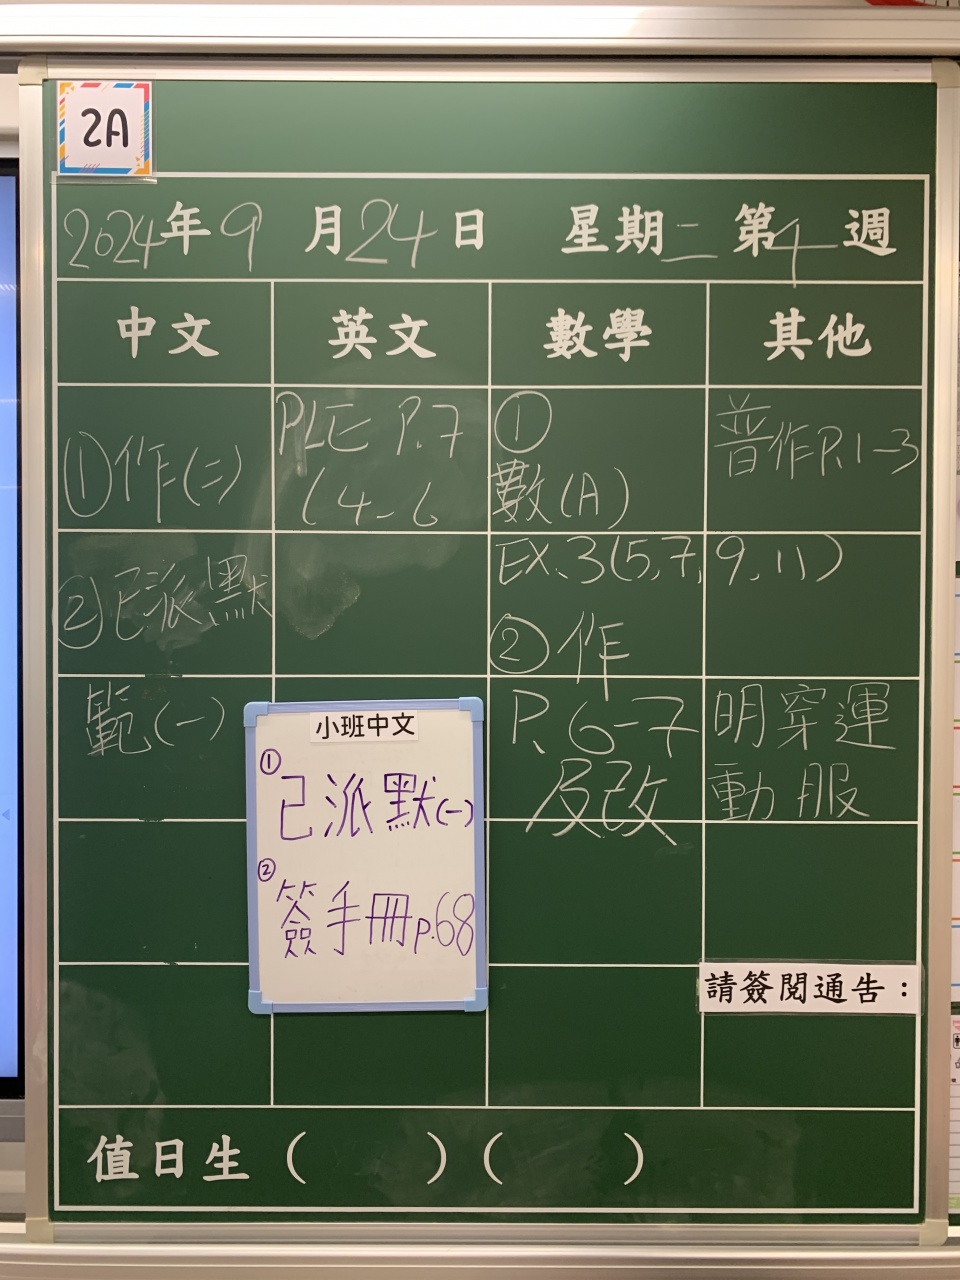 2A
2024年9月24日 星期二 第4週
中文 英文 數學 其他
①作(二)
②已派默
範(一)
PLE P.7
(4-6
①
數(A)
EX.3(5,7,9,11)
②作
P.6-7
及改
普作P.1-3
明穿運
動服
小班中文
①
已派默(一)
②
簽手冊p.68
請簽閱通告：
值日生（ ）（ ）